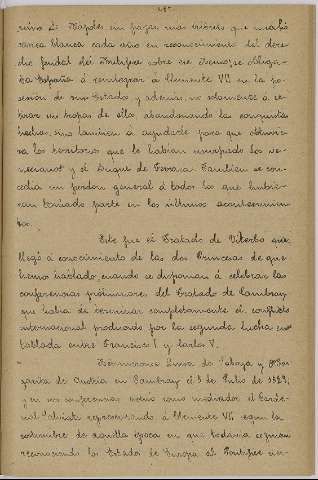 reino de Nápoles sin pagar más tributo que una ha-
canea blanca cada año en reconocimiento del dere-
cho feudal del Pontífice sobre ese
España á reintegrar á Clemente VII en la po-
sesión de sus Estados y además no solamente á re-
tirar sus tropas de ellos, abandonando las conquistas
hechas, sino también á ayudarle para que obtuvie-
ra los territorios que le habían usurpado los ve-
necianos y el Duque de Ferrara. También se con-
cedía un perdón general á todos los que hubie-
ran tomado parte en los últimos acontecimien-
tos.
Este fue el Tratado de Viterbo que
llegó á conocimiento de las dos Princesas de que
hemos hablado cuando se disponían á celebrar las
conferencias preliminares del Tratado de Cambray
que había de terminar completamente el conflicto
internacional producido por la segunda lucha en-
tablada entre Francisco I y Carlos V.
Luisa de Saboya y Mar-
garita de Austria en Cambray el 5 de Julio de 1529,
y en sus conferencias como mediador el Carde-
nal Salviati representando á Clemente VII según la
costumbre de aquella época en que todavía seguían
reconociendo los Estados de Europa al Pontífice